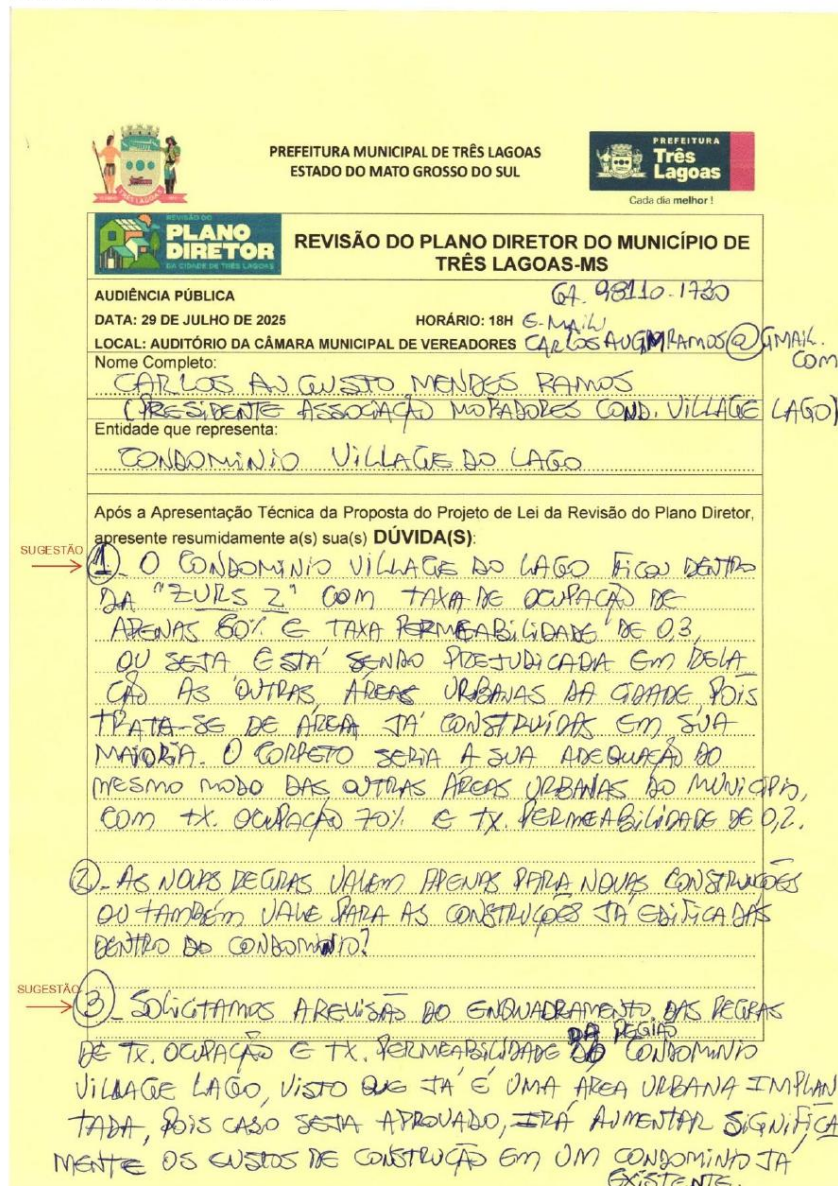 PREFEITURA MUNICIPAL DE TRÊS LAGOAS
ESTADO DO MATO GROSSO DO SUL
PREFEITURA
Três
Lagoas
Cada dia melhor !
TRÊS LAGOAS
REVISÃO DO
PLANO
DIRETOR
DA CIDADE DE TRÊS LAGOAS
REVISÃO DO PLANO DIRETOR DO MUNICÍPIO DE
TRÊS LAGOAS-MS
AUDIÊNCIA PÚBLICA 67. 98110-1730
DATA: 29 DE JULHO DE 2025 HORÁRIO: 18H E-MAIL
LOCAL: AUDITÓRIO DA CÂMARA MUNICIPAL DE VEREADORES CARLOSAUGMRAMOS@GMAIL.
COM
Nome Completo:
CARLOS AUGUSTO MENDES RAMOS
(PRESIDENTE ASSOCIAÇÃO MORADORES COND. VILLAGE LAGO)
Entidade que representa:
CONDOMINIO VILLAGE DO LAGO
Após a Apresentação Técnica da Proposta do Projeto de Lei da Revisão do Plano Diretor,
apresente resumidamente a(s) sua(s) DÚVIDA(S):
SUGESTÃO
1- O CONDOMINIO VILLAGE DO LAGO FICOU DENTRO
DA "ZURS 2" COM TAXA DE OCUPAÇÃO DE
APENAS 60% E TAXA PERMEABILIDADE DE 0,3,
OU SEJA ESTÁ SENDO PREJUDICADA EM RELA
ÇÃO AS OUTRAS ÁREAS URBANAS DA CIDADE, POIS
TRATA-SE DE ÁREA JÁ CONSTRUÍDAS EM SUA
MAIORIA. O CORRETO SERIA A SUA ADEQUAÇÃO DO
MESMO MODO DAS OUTRAS ÁREAS URBANAS DO MUNICÍPIO,
COM TX. OCUPAÇÃO 70% E TX. PERMEABILIDADE DE 0,2.
2- AS NOVAS REGRAS VALEM APENAS PARA NOVAS CONSTRUÇÕES
OU TAMBÉM VALE PARA AS CONSTRUÇÕES JÁ EDIFICADAS
DENTRO DO CONDOMINIO?
SUGESTÃO
3- SOLICITAMOS A REVISÃO DO ENQUADRAMENTO DAS REGRAS
DE TX. OCUPAÇÃO E TX. PERMEABILIDADE DA REGIÃO DO CONDOMINIO
VILLAGE LAGO, VISTO QUE JÁ É UMA ÁREA URBANA IMPLAN
TADA, POIS CASO SEJA APROVADO, IRÁ AUMENTAR SIGNIFICA
MENTE OS CUSTOS DE CONSTRUÇÃO EM UM CONDOMINIO JÁ
EXISTENTE.